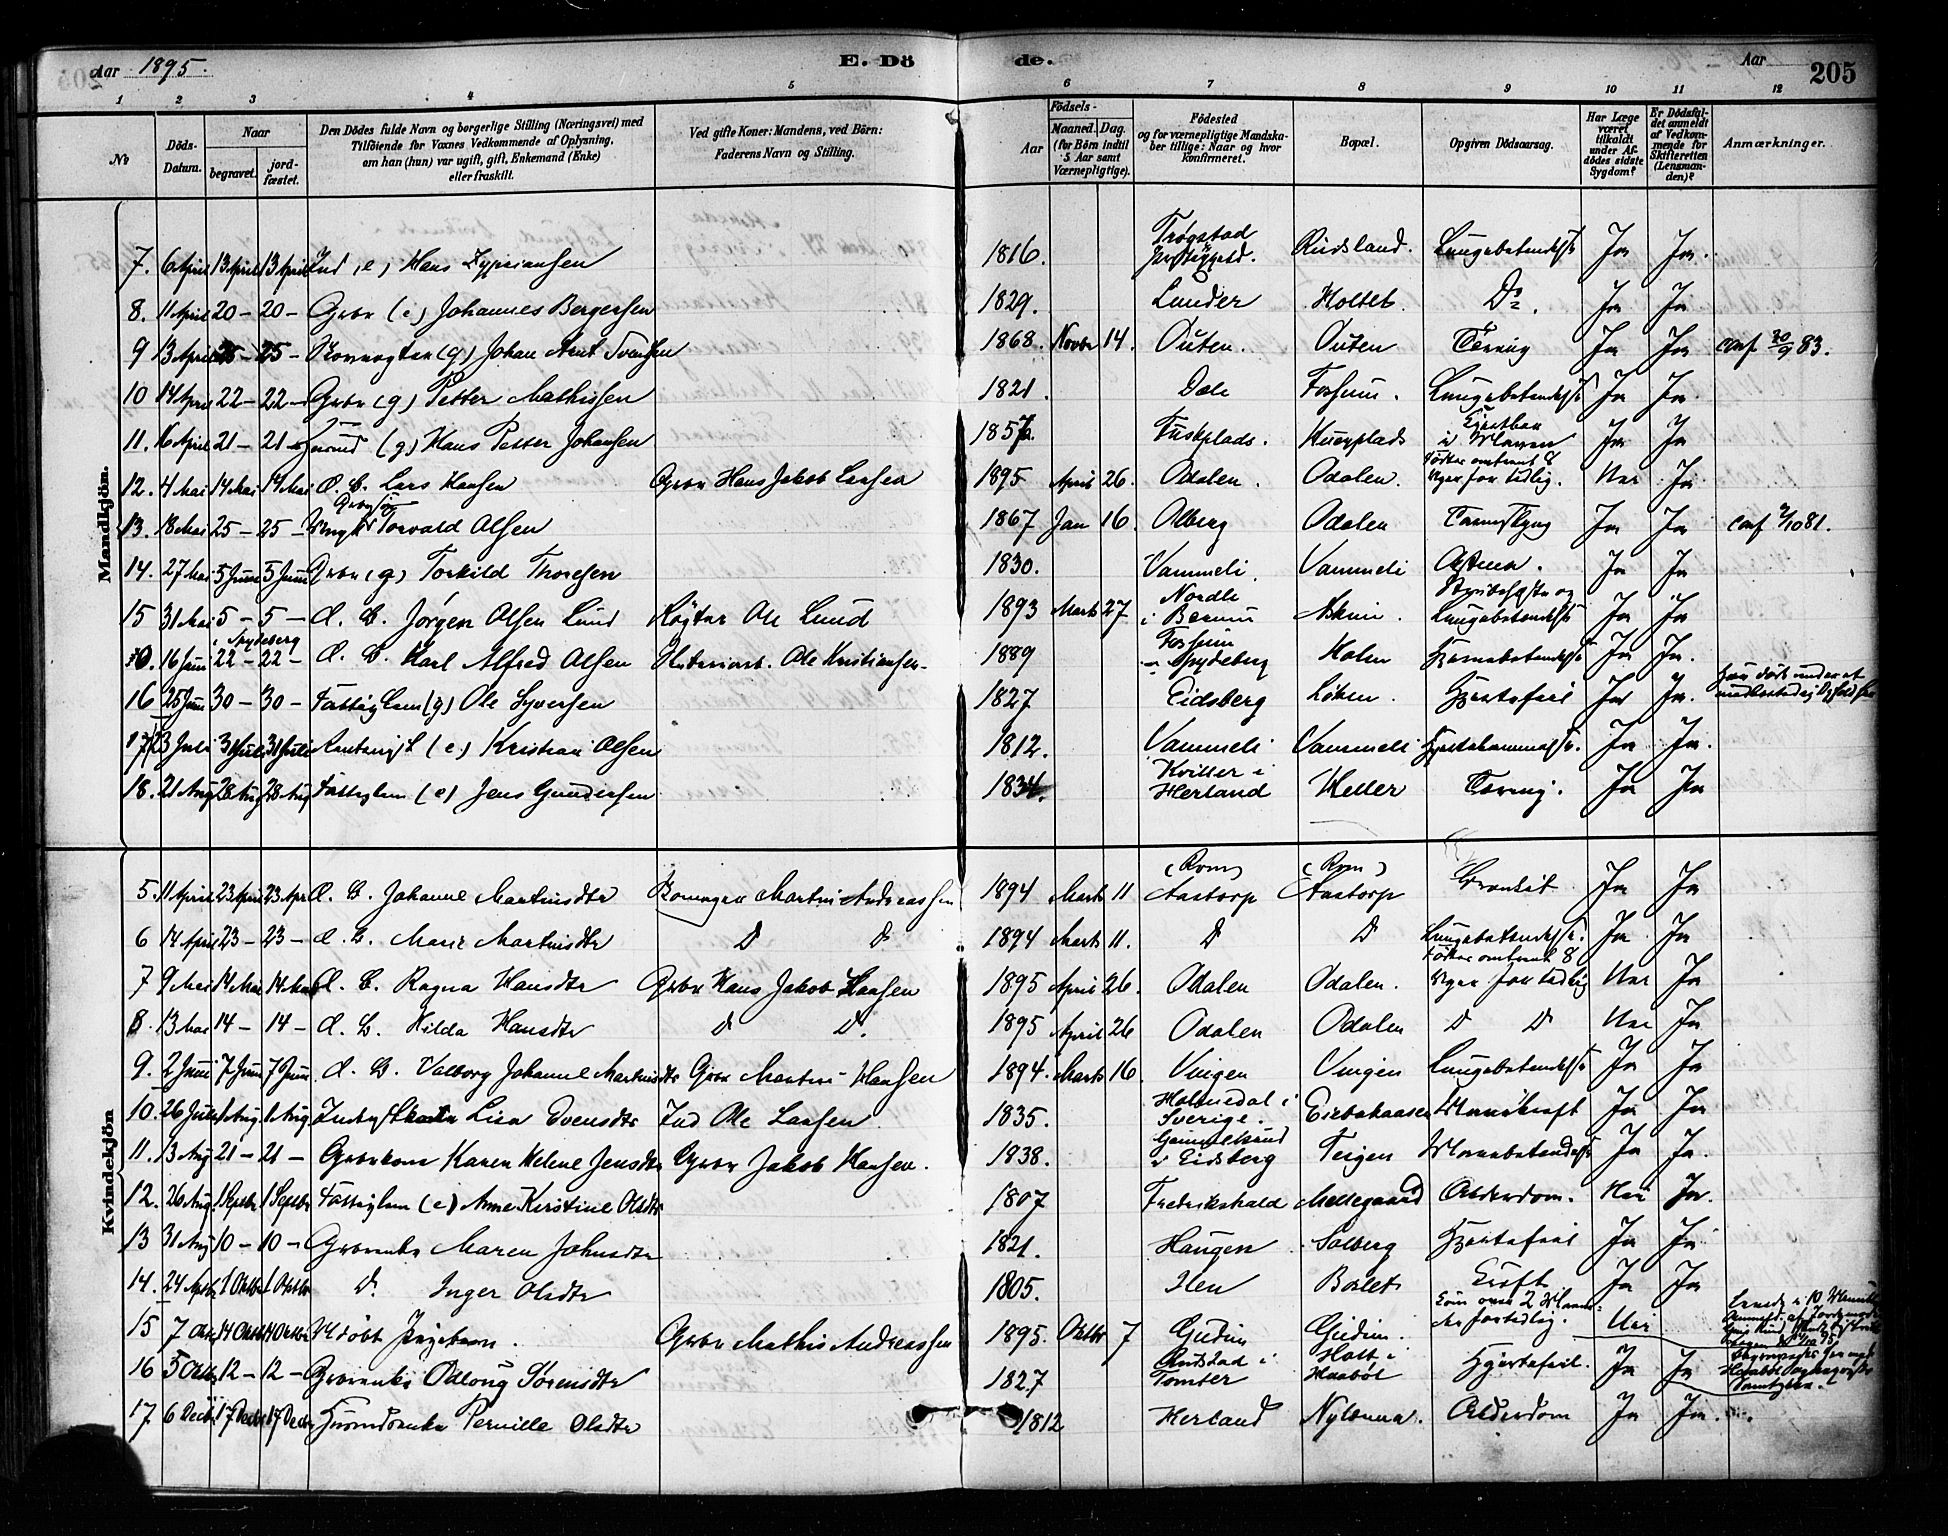 Aar 1895.
E. Dö
de.
Aar
205
1 2 3 4 5 6 7 8 9 10 11 12
No
Döds-Datum.
Naar
begravet.
jord-fæstet.
Den Dödes fulde Navn og borgerlige Stilling (Næringsvei) med
Tilföiende for Voxnes Vedkommende af Oplysning,
om han (hun) var ugift, gift, Enkemand (Enke)
eller fraskilt.
Ved gifte Koner: Mandens, ved Börn:
Faderens Navn og Stilling.
Födsels-
Aar
Maaned. Dag.
(for Börn indtil
5 Aar samt
Værnepligtige).
Födested
og for værnepligtige Mandska-
ber tillige: Naar og hvor
konfirmeret.
Bopæl.
Opgiven Dödsaarsag.
Har Læge
været
tilkaldt
under Af-
dödes sidste
Sygdom?
Er Dödsfal-
det anmeldt
af Vedkom-
mende for
Skifteretten
(Lensman-
den)?
Anmærkninger.
Mandkjön.
7. 6 April 13 April 13 April Ind. (e) Hans Zypriansen 1816. Trøgstad Rudsland. Lungebetændelse Ja Ja.
8. 11 April 20 – 20 – Grbr (e) Johannes Bergersen 1829. Lunder Holtet Do. Ja Ja
9 13 April 25 – 25 – (g) Johan Arnt Svensen 1868. Novbr 14. Outen. Outen Tæring Ja Ja conf 30/9 83.
10 14 April 22 – 22 – Grbr (g) Petter Mathisen 1821. Dale Fossum. Lungebetændelse Ja Ja.
11. 16 April 21 – 21 – (g) Hans Petter Johansen 1857. Ja Ja
12. 4 Mai 14 Mai 14 Mai d. B. Lars Hansen Grbr Hans Jakob Larsen 1895 April 26. Odalen. Odalen. Födtes omtrent 8 Uger for tidlig. Nei Ja
13. 18 Mai 25 – 25 – Torvald Olsen 1867 Jan 16. Olberg Odalen Ja Ja conf 2/10 81.
14. 27 Mai 5 Juni 5 Juni Grbr (g) Torkild Thoresen 1830. Vammeli. Vammeli Astma. Ja Ja
15 31 Mai 5 – 5 – d. B. Jørgen Olsen Lund Røgter Ole Lund 1893 Marts 27 Nordli i Askim Strubehoste og Lungebetændelse Ja Ja
0. 16 Juni i Spydeberg 22 – 22 – d. B. Karl Alfred Olsen Ole Kristiansen 1889 Fossum i Spydeberg Holm Hjernebetændelse Ja Ja.
16 25 Juni 30 – 30 – Fattiglem (g) Ole Syversen 1827 Eidsberg Løken. Hjertefeil Ja Ja.
17 23 Juli 31 Juli 31 Juli (e) Kristian Olsen 1812. Vammeli Vammeli Ja Ja.
18. 21 Aug 28 Aug 28 Aug Fattiglem (e) Jens Gundersen 1834. Kviller i Herland Heller Tæring. Ja Ja
Kvindekjön
5. 11 April 23 April 23 Apr d. B. Johanne Martinsdtr Martin Andreassen 1894 Marts 11 (Rom) Aastorp (Rom) Aastorp Bronkit Ja Ja
6 14 April 23 – 23 – d. B. Marie Martinsdtr D D 1894 Marts 11. D D Lungebetændelse. Ja Ja
7 9 Mai 14 Mai 14 Mai d. B. Ragna Hansdtr Grbr Hans Jakob Larsen 1895 April 26. Odalen Odalen. Födtes omtrent 8 Uger for tidlig Nei Ja
8. 13 Mai 14 – 14 – d. B. Hilda Hansdtr D D. 1895 April 26 Odalen Odalen D D Nei Ja
9. 2 Juni 7 Juni 7 Juni d. B. Valborg Johanne Martinsdtr Grbr Martin Hansen 1894. Marts 16. Vingen Vingen Lungebetændelse Ja Ja
10. 26 Juli 1 Aug 1 Aug Lisa Svensdtr Ind Ole Larsen 1835. Holmedal i Sverige. Mavekræft Ja Ja
11. 13 Aug 21 – 21 – Grbrkone Karen Helene Jensdtr Grbr Jakob Hansen. 1838. i Eidsberg Teigen Mavebetændelse Ja Ja.
12. 26 Aug 1 Septbr 1 Septbr Fattiglem (e) Anne Kirstine Olsdtr 1807 Frederikshald Mellegaard Alderdom. Nei Ja.
13 31 Aug 10 – 10 – Grbrenke Maren Johnsdtr 1821. Haugen Solberg Hjertefeil Ja Ja
14. 24 Septbr 1 Oktbr 1 Oktbr D. Inger Olsdtr 1805. Hen Kræft Ja Ja
15 7 Oktbr 14 Oktbr 14 Oktbr Udöbt Pigebarn. Grbr Mathis Andreassen 1895. Oktbr 7 Gudim Gudim. for tidlig. Nei
16 5 Oktbr 12 – 12 – Grbrenke Odloug Sørensdtr 1827 i Tomter Holt i Haabøl Hjertefeil. Ja Ja
17 6 Decbr 17 Decbr 17 Decbr Pernille Olsdtr 1812 Herland Alderdom Ja Ja.